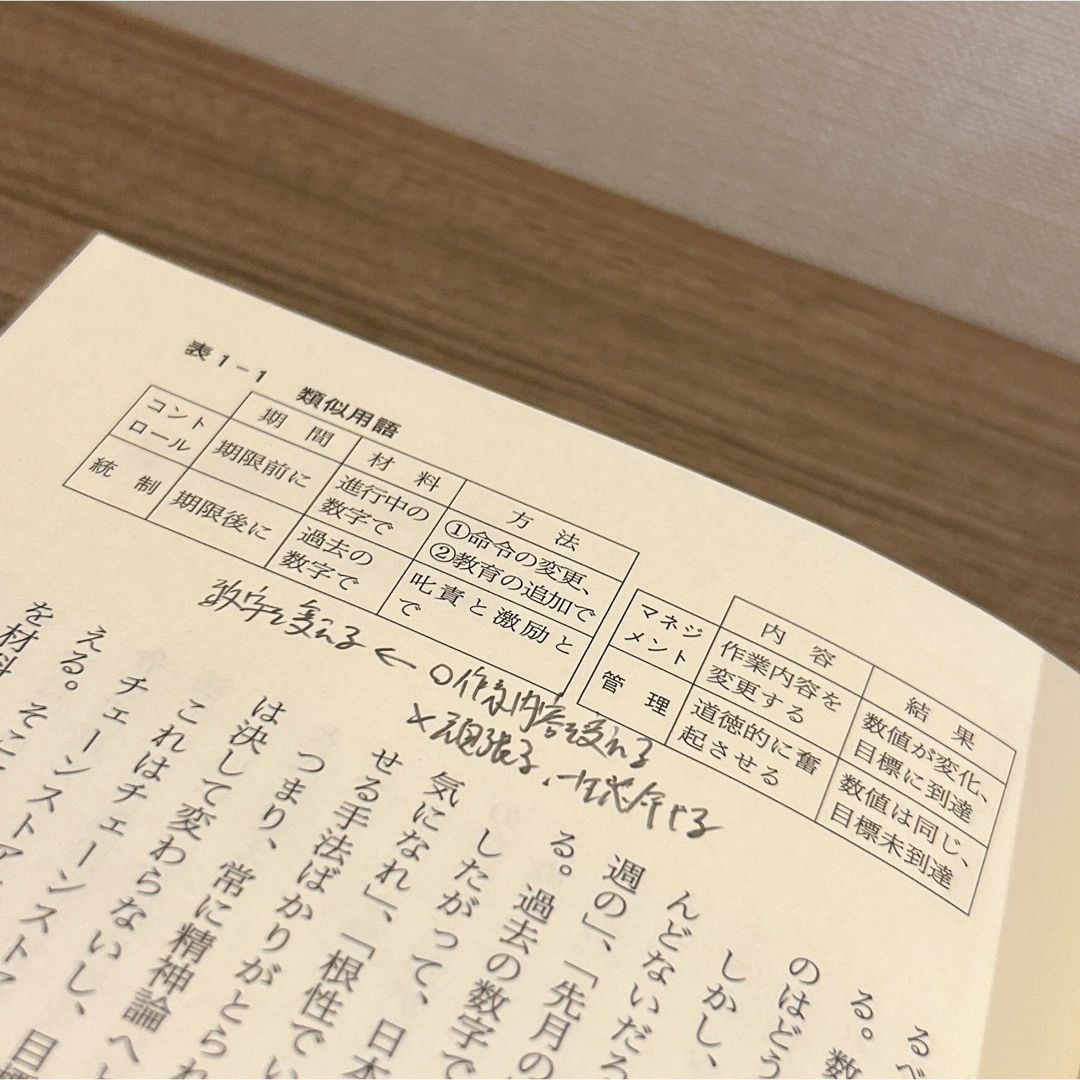 表1-1 類似用語
期間 材料 方法
コント
ロール
期限前に
進行中の
数字で
①命令の変更、
②教育の追加で
統制
期限後に
過去の
数字で
叱責と激励と
で
内容 結果
マネジ
メント
作業内容を
変更する
数値が変化、
目標に到達
管理
道徳的に奮
起させる
数値は同じ、
目標未到達
数字を変える ← ○作業内容を変える
× 頑張る、
るべ
る。数
のはどう
しかし、
んどないだろ
週の」、「先月の
る。過去の数字で
したがって、日本
気になれ」、「根性でい
せる手法ばかりがとられ
つまり、常に精神論へ
は決して変わらないし、目
これはチェーンストア
チェーンストア
える。そこ
を材料